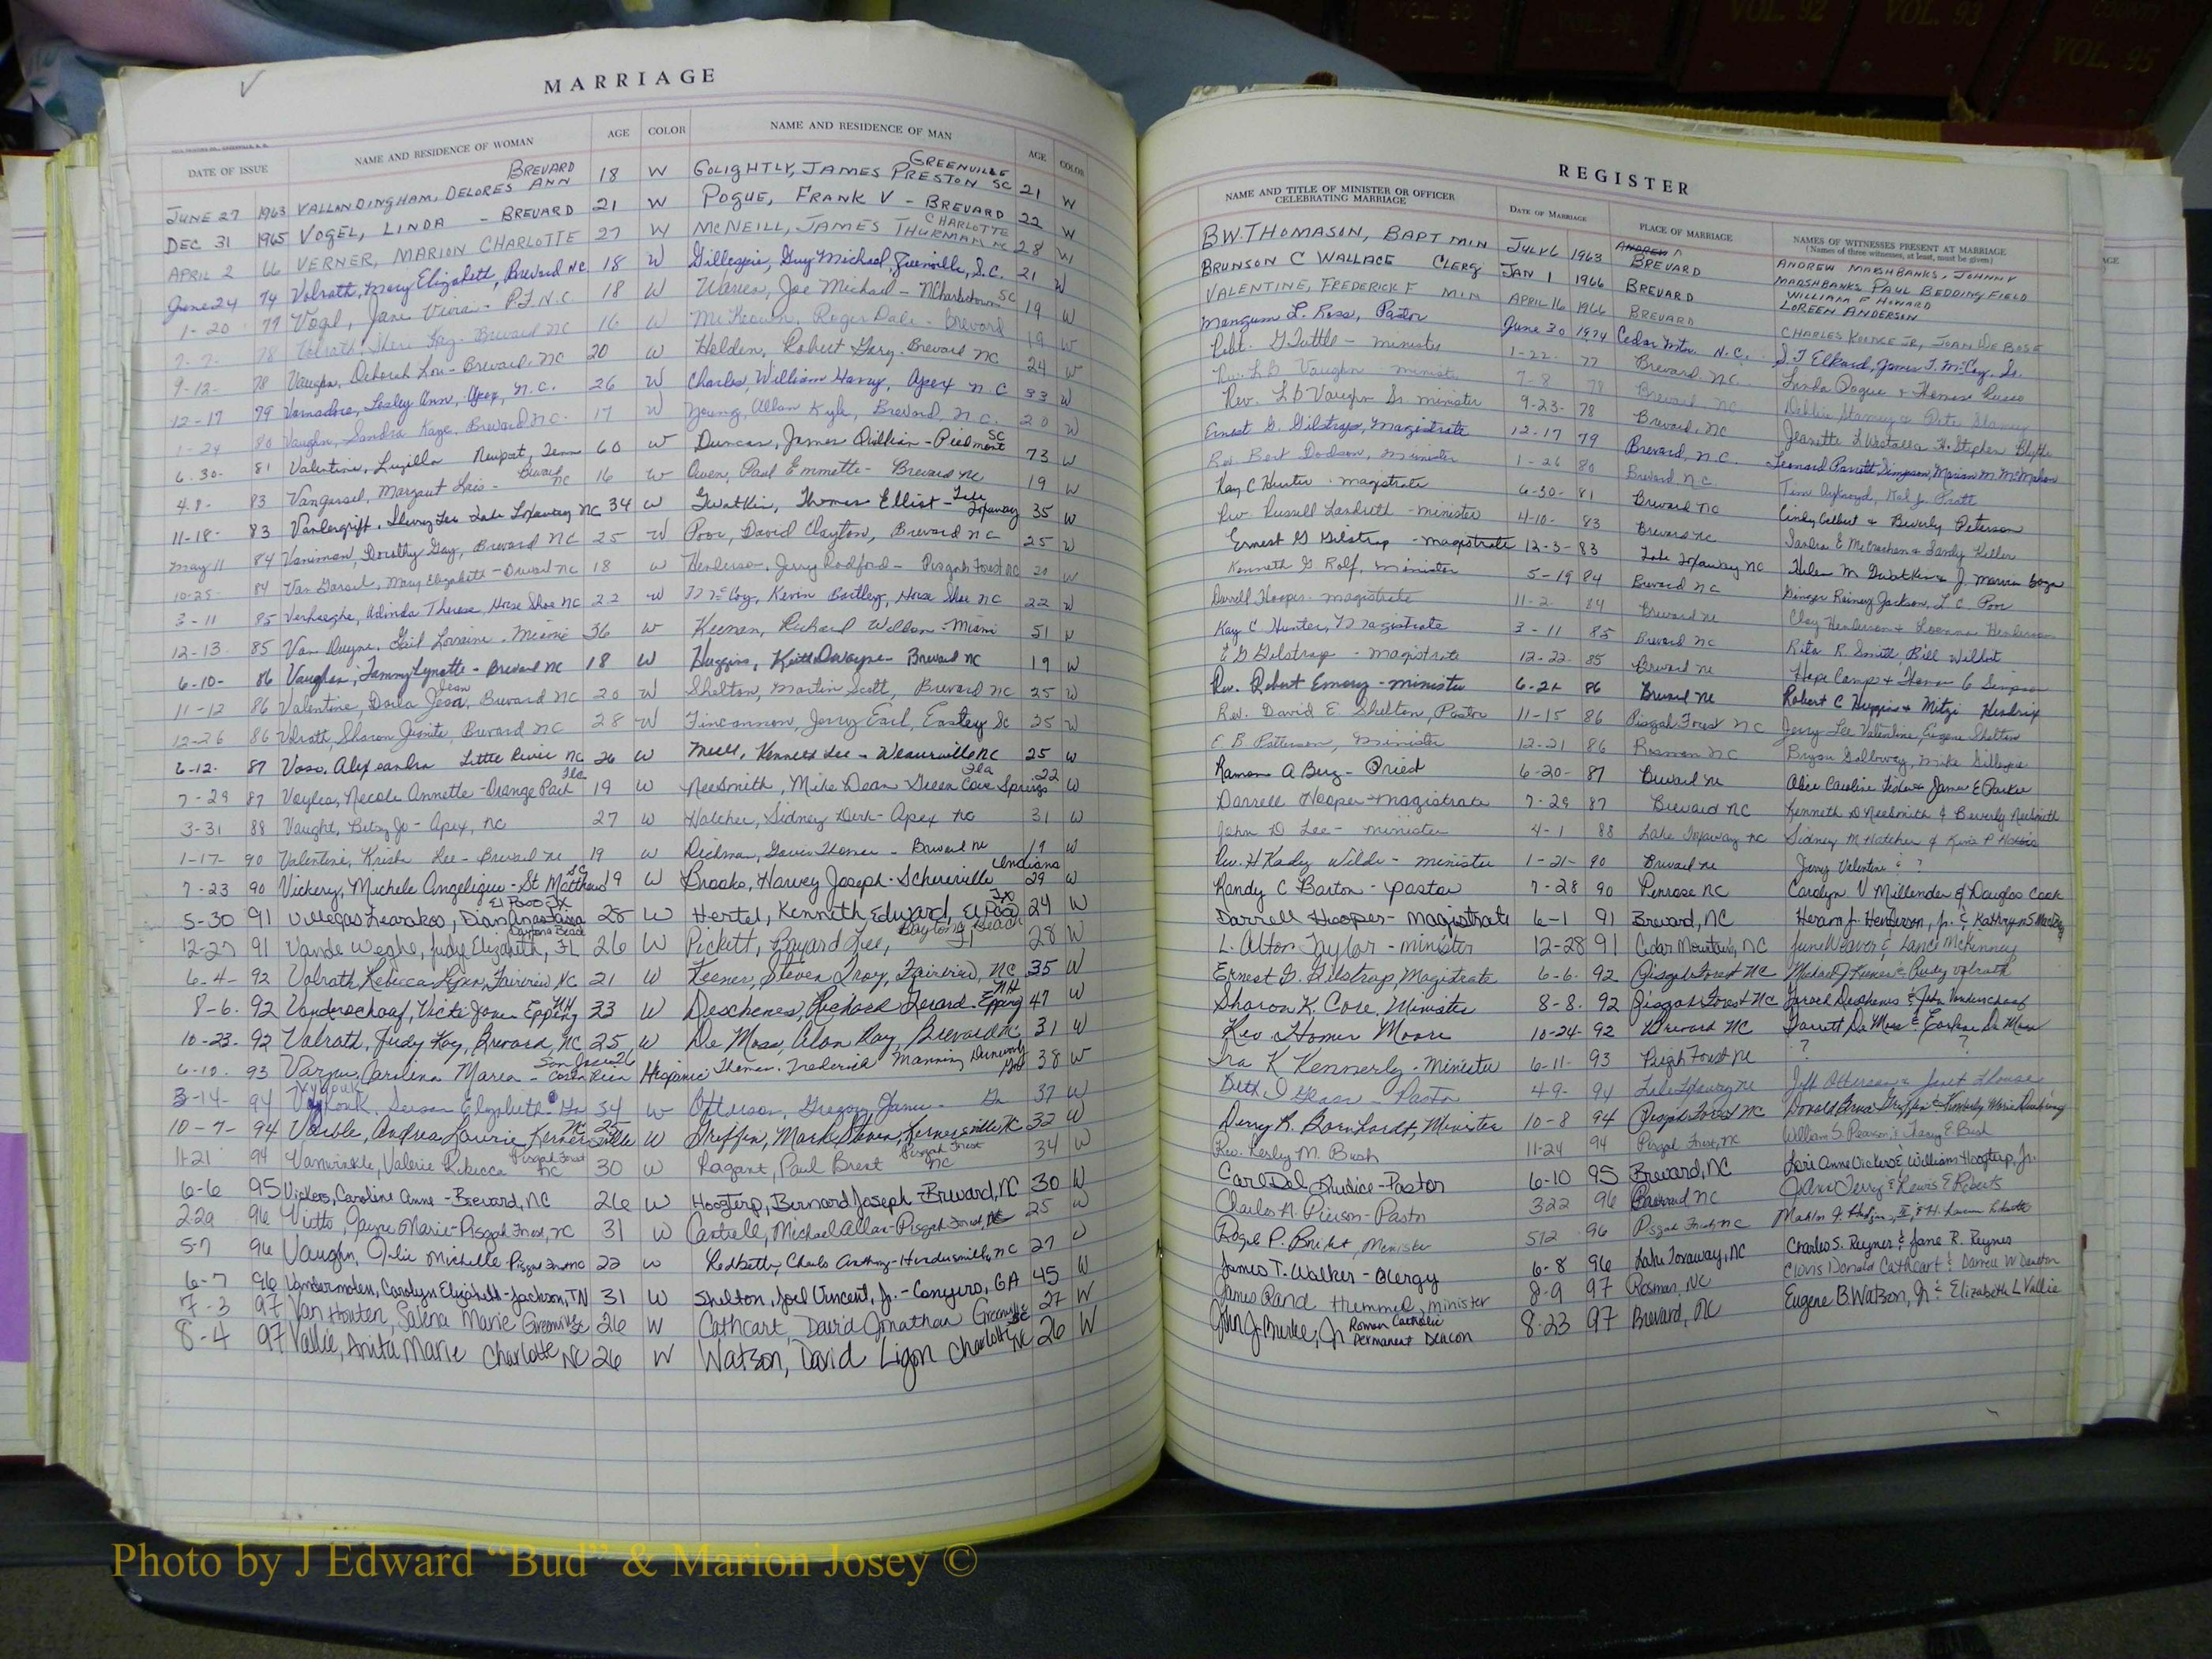 VOL. 92
VOL. 93
VOL. 95
MARRIAGE
DATE OF ISSUE NAME AND RESIDENCE OF WOMAN AGE COLOR NAME AND RESIDENCE OF MAN AGE COLOR
JUNE 27 1963 VALLANDINGHAM, DELORES ANN BREVARD 18 W GOLIGHTLY, JAMES PRESTON GREENVILLE SC 21 W
DEC 31 1965 VOGEL, LINDA - BREVARD 21 W POGUE, FRANK V - BREVARD 22 W
APRIL 2 66 VERNER, MARION CHARLOTTE 27 W MCNEILL, JAMES THURMAN CHARLOTTE NC 28 W
June 24 74 Volrath, Mary Elizabeth, Brevard NC 18 W Gillespie, Guy Michael, Greenville, S.C. 21 W
1-20 77 Vogel, Jane - P.F. N.C. 18 W Warren, Joe Michael - N Charleston SC 19 W
7-7- 78 Volrath, Kay - Brevard NC 16 W McKeown, Roger Dale - Brevard 19 W
9-12- 78 Vaughn, Deborah Lou - Brevard, NC 20 W Holden, Robert Gary - Brevard NC 24 W
12-17 79 Vansadore, Lesley Ann, Apex, N.C. 26 W Charles, William Harry, Apex N.C 33 W
1-24 80 Vaughn, Sandra Kaye, Brevard N.C. 17 W Young, Allan Kyle, Brevard N.C. 20 W
6-30- 81 Valentine, Luzilla Newport, Tenn 60 W Duncan, James Quillian - Piedmont SC 73 W
4-8- 83 Vangorsel, Margaret Lois - Brevard NC 16 W Owen, Paul Emmette - Brevard NC 19 W
11-18- 83 Vandergrift, Sherry Lee Lake Toxaway NC 34 W Gwatkin, Thomas Elliot - Lake Toxaway 35 W
May 11 84 Vaniman, Dorothy Gay, Brevard NC 25 W Poor, David Clayton, Brevard NC 25 W
10-25- 84 Van Gorsel, Mary Elizabeth - Brevard NC 18 W Henderson, Jerry Radford - Pisgah Forest NC 20 W
3-11 85 Verhaeghe, Adinda Therese, Horse Shoe NC 22 W McCoy, Kevin Bartley, Horse Shoe NC 22 W
12-13- 85 Van Duyne, Gail Lorraine - Miami 36 W Keenan, Richard William - Miami 51 W
6-10- 86 Vaughn, Tammy Lynette - Brevard NC 18 W Huggins, Keith Dwayne - Brevard NC 19 W
11-12 86 Valentine, Darla Jean, Brevard NC 20 W Shelton, Martin Scott, Brevard NC 25 W
12-26 86 Volrath, Sharon Juanita, Brevard NC 28 W Fincannon, Jerry Earl, Easley SC 25 W
6-12- 87 Voso, Alexandra Little River NC 26 W Mull, Kenneth Lee - Weaverville NC 25 W
7-29 87 Voyles, Necole Annette - Orange Park Fla 19 W NeeSmith, Mike Dean Green Cove Springs Fla 22 W
3-31 88 Vaught, Betsy Jo - Apex, NC 27 W Hatcher, Sidney Dirk - Apex NC 31 W
1-17- 90 Valentine, Krisha Lee - Brevard NC 19 W Dedman, Gavin Thomas - Brevard NC 19 W
7-23 90 Vickery, Michele Angelique - St Matthews SC 19 W Brooks, Harvey Joseph - Schererville Indiana 29 W
5-30 91 Villegas Learakos, Dian Anastasia El Paso TX 25 W Hertel, Kenneth Edward, El Paso TX 24 W
12-27 91 Vande Weghe, Judy Elizabeth, Daytona Beach FL 26 W Pickett, Bayard Lee, Daytona Beach Fl 28 W
6-4- 92 Volrath, Rebecca Lynn, Fairview NC 21 W Keener, Steven Troy, Fairview, NC 35 W
8-6- 92 Vanderschaaf, Vicki Jones Epping NH 33 W Deschenes, Richard Gerard - Epping NH 47 W
10-23- 92 Volrath, Judy Kay, Brevard, NC 25 W De Moss, Alan Ray, Brevard NC 31 W
6-10- 93 Carolina Maria - San Jose Costa Rica 26 Hispanic Thomas, Frederick Manning 38 W
3-14- 94 Susan Elizabeth - Ga 34 W Otterson, Gregory James - Ga 37 W
10-7- 94 Voible, Andrea Laverie, Kernersville NC 25 W Griffin, Mark Steven, Kernersville NC 32 W
11-21 94 Vanwinkle, Valerie Rebecca Pisgah Forest NC 30 W Ragant, Paul Brent Pisgah Forest NC 34 W
6-6 95 Vickers, Caroline Anne - Brevard, NC 26 W Hoogterp, Bernard Joseph - Brevard, NC 30 W
2-29 96 Vietto, Jayne Marie - Pisgah Forest, NC 31 W Cantrell, Michael Allan - Pisgah Forest, NC 25 W
5-7 96 Vaughn, Julie Michelle Pisgah Forest NC 22 W Ledbetter, Charles Anthony - Hendersonville, NC 27 W
6-7 96 Vandermolen, Carolyn Elizabeth - Jackson, TN 31 W Shelton, Joel Vincent, Jr. - Conyers, GA 45 W
7-3 97 Van Houten, Salena Marie Greenville SC 26 W Cathcart, David Jonathan Greenville SC 27 W
8-4 97 Vallie, Anita Marie Charlotte NC 26 W Watson, David Ligon Charlotte NC 26 W
REGISTER
NAME AND TITLE OF MINISTER OR OFFICER CELEBRATING MARRIAGE DATE OF MARRIAGE PLACE OF MARRIAGE NAMES OF WITNESSES PRESENT AT MARRIAGE
(Names of three witnesses, at least, must be given)
B.W. THOMASON, BAPT MIN JULY 6 1963 BREVARD ANDREW MARSHBANKS, JOHNNY MARSHBANKS PAUL BEDDINGFIELD
BRUNSON C WALLACE CLERGY JAN 1 1966 BREVARD WILLIAM F HOWARD LOREEN ANDERSON
VALENTINE, FREDERICK F MIN APRIL 16 1966 BREVARD CHARLES KOONCE JR, JOAN DE BOSE
Mangum L. Ross, Pastor June 30 1974 Cedar Mtn. N.C. J T Elkard, James T. McCoy, Sr.
Robt. G Tuttle - minister 1-22- 77 Brevard NC Linda Pogue & Thomas Russo
Rev. L B Vaughn minister 7-8 78 Brevard NC Debbie Stamey & Pete Stamey
Rev. L B Vaughn Sr. minister 9-23- 78 Brevard NC Jeanette & H. Stephen Blythe
Ernest G. Gilstrap, Magistrate 12-17 79 Brevard, N.C. Leonard Parrott Simpson, Marian M. McMahan
Rev. Bert Dodson, Minister 1-26 80 Brevard NC Tim Aykroyd, Hal J. Pratt
Kay C Hunter - magistrate 6-30- 81 Brevard NC Cindy Gilbert & Beverly Peterson
Rev. Russell Landreth - minister 4-10- 83 Brevard NC Sandra E McCrackan & Sandy Keller
Ernest G Gilstrap - magistrate 12-3-83 Lake Toxaway NC Helen M Gwatkin & J. Marvin
Kenneth G. Rolf, Minister 5-19 84 Brevard NC Ginger Rainey Jackson, L C Poor
Darrell Hooper - magistrate 11-2- 84 Brevard NC Clay Henderson & Leanna Henderson
Kay C Hunter, Magistrate 3-11 85 Brevard NC Rita R. Smith, Bill Wilhit
E G Gilstrap - magistrate 12-22- 85 Brevard NC Hope Camp & Thomas G Simpson
Rev. Robert Emory - minister 6-21 86 Brevard NC Robert C Huggins & Mitzi Hendrix
Rev. David E. Shelton, Pastor 11-15 86 Pisgah Forest NC Jerry Lee Valentine, Eugene Shelton
E B Patterson, Minister 12-31 86 Rosman NC Bryan Galloway, Mike Gillespie
Ramon A Berg - Priest 6-20- 87 Brevard NC Alice Caroline & James E Parker
Darrell Hooper - magistrate 7-29 87 Brevard NC Kenneth D NeeSmith & Beverly NeeSmith
John D Lee - minister 4-1 88 Lake Toxaway NC Sidney M Hatcher & Kris P Harris
Rev. H Kadey Wilde - minister 1-21- 90 Brevard NC Jerry Valentine & ?
Randy C Barton - pastor 7-28 90 Penrose NC Carolyn V Millender & Douglas Cook
Darrell Hooper - Magistrate 6-1 91 Brevard, NC Heram J. Henderson, Jr. & Kathryn S
L. Alton Tylor - minister 12-28 91 Cedar Mountain, NC June Weaver & Lance McKinney
Ernest G. Gilstrap, Magistrate 6-6- 92 Pisgah Forest NC Michael J Keener & Rudy Volrath
Sharon K. Core, Minister 8-8- 92 Pisgah Forest NC Deschenes & John Vanderschaaf
Rev Homer Moore 10-24- 92 Brevard NC Garrett De Moss & Earlene De Moss
Ira K Kennerly - Minister 6-11- 93 Pisgah Forest NC ? ?
Glass - Pastor 4-9- 94 Lake Toxaway NC Jeff Otterson & Janet
Derry R. Barnhardt, Minister 10-8 94 Pisgah Forest NC Donald Bruce Griffin & Kimberly Marie
Rev. Kesley M. Bush 11-24 94 Pisgah Forest, NC William S. Pearson & Tracy E. Bush
Carl Del Giudice - Pastor 6-10 95 Brevard, NC Lori Anne Vickers & William Hoogterp, Jr.
Charles A. Pierson - Pastor 3 22 96 Brevard NC JoAnn Terry & Lewis E Roberts
Roger P. Briket, Minister 5 12 96 Pisgah Forest NC
James T. Walker - Clergy 6-8 96 Lake Toxaway, NC Charles S. Reyner & Jane R. Reyner
James Rand Hummel, minister 8-9 97 Rosman, NC Clovis Donald Cathcart & Darrell W Denton
John J. Burke, Jr Roman Catholic Permanent Deacon 8-23 97 Brevard, NC Eugene B. Watson, Jr & Elizabeth L Vallie
Photo by J Edward “Bud” & Marion Josey ©